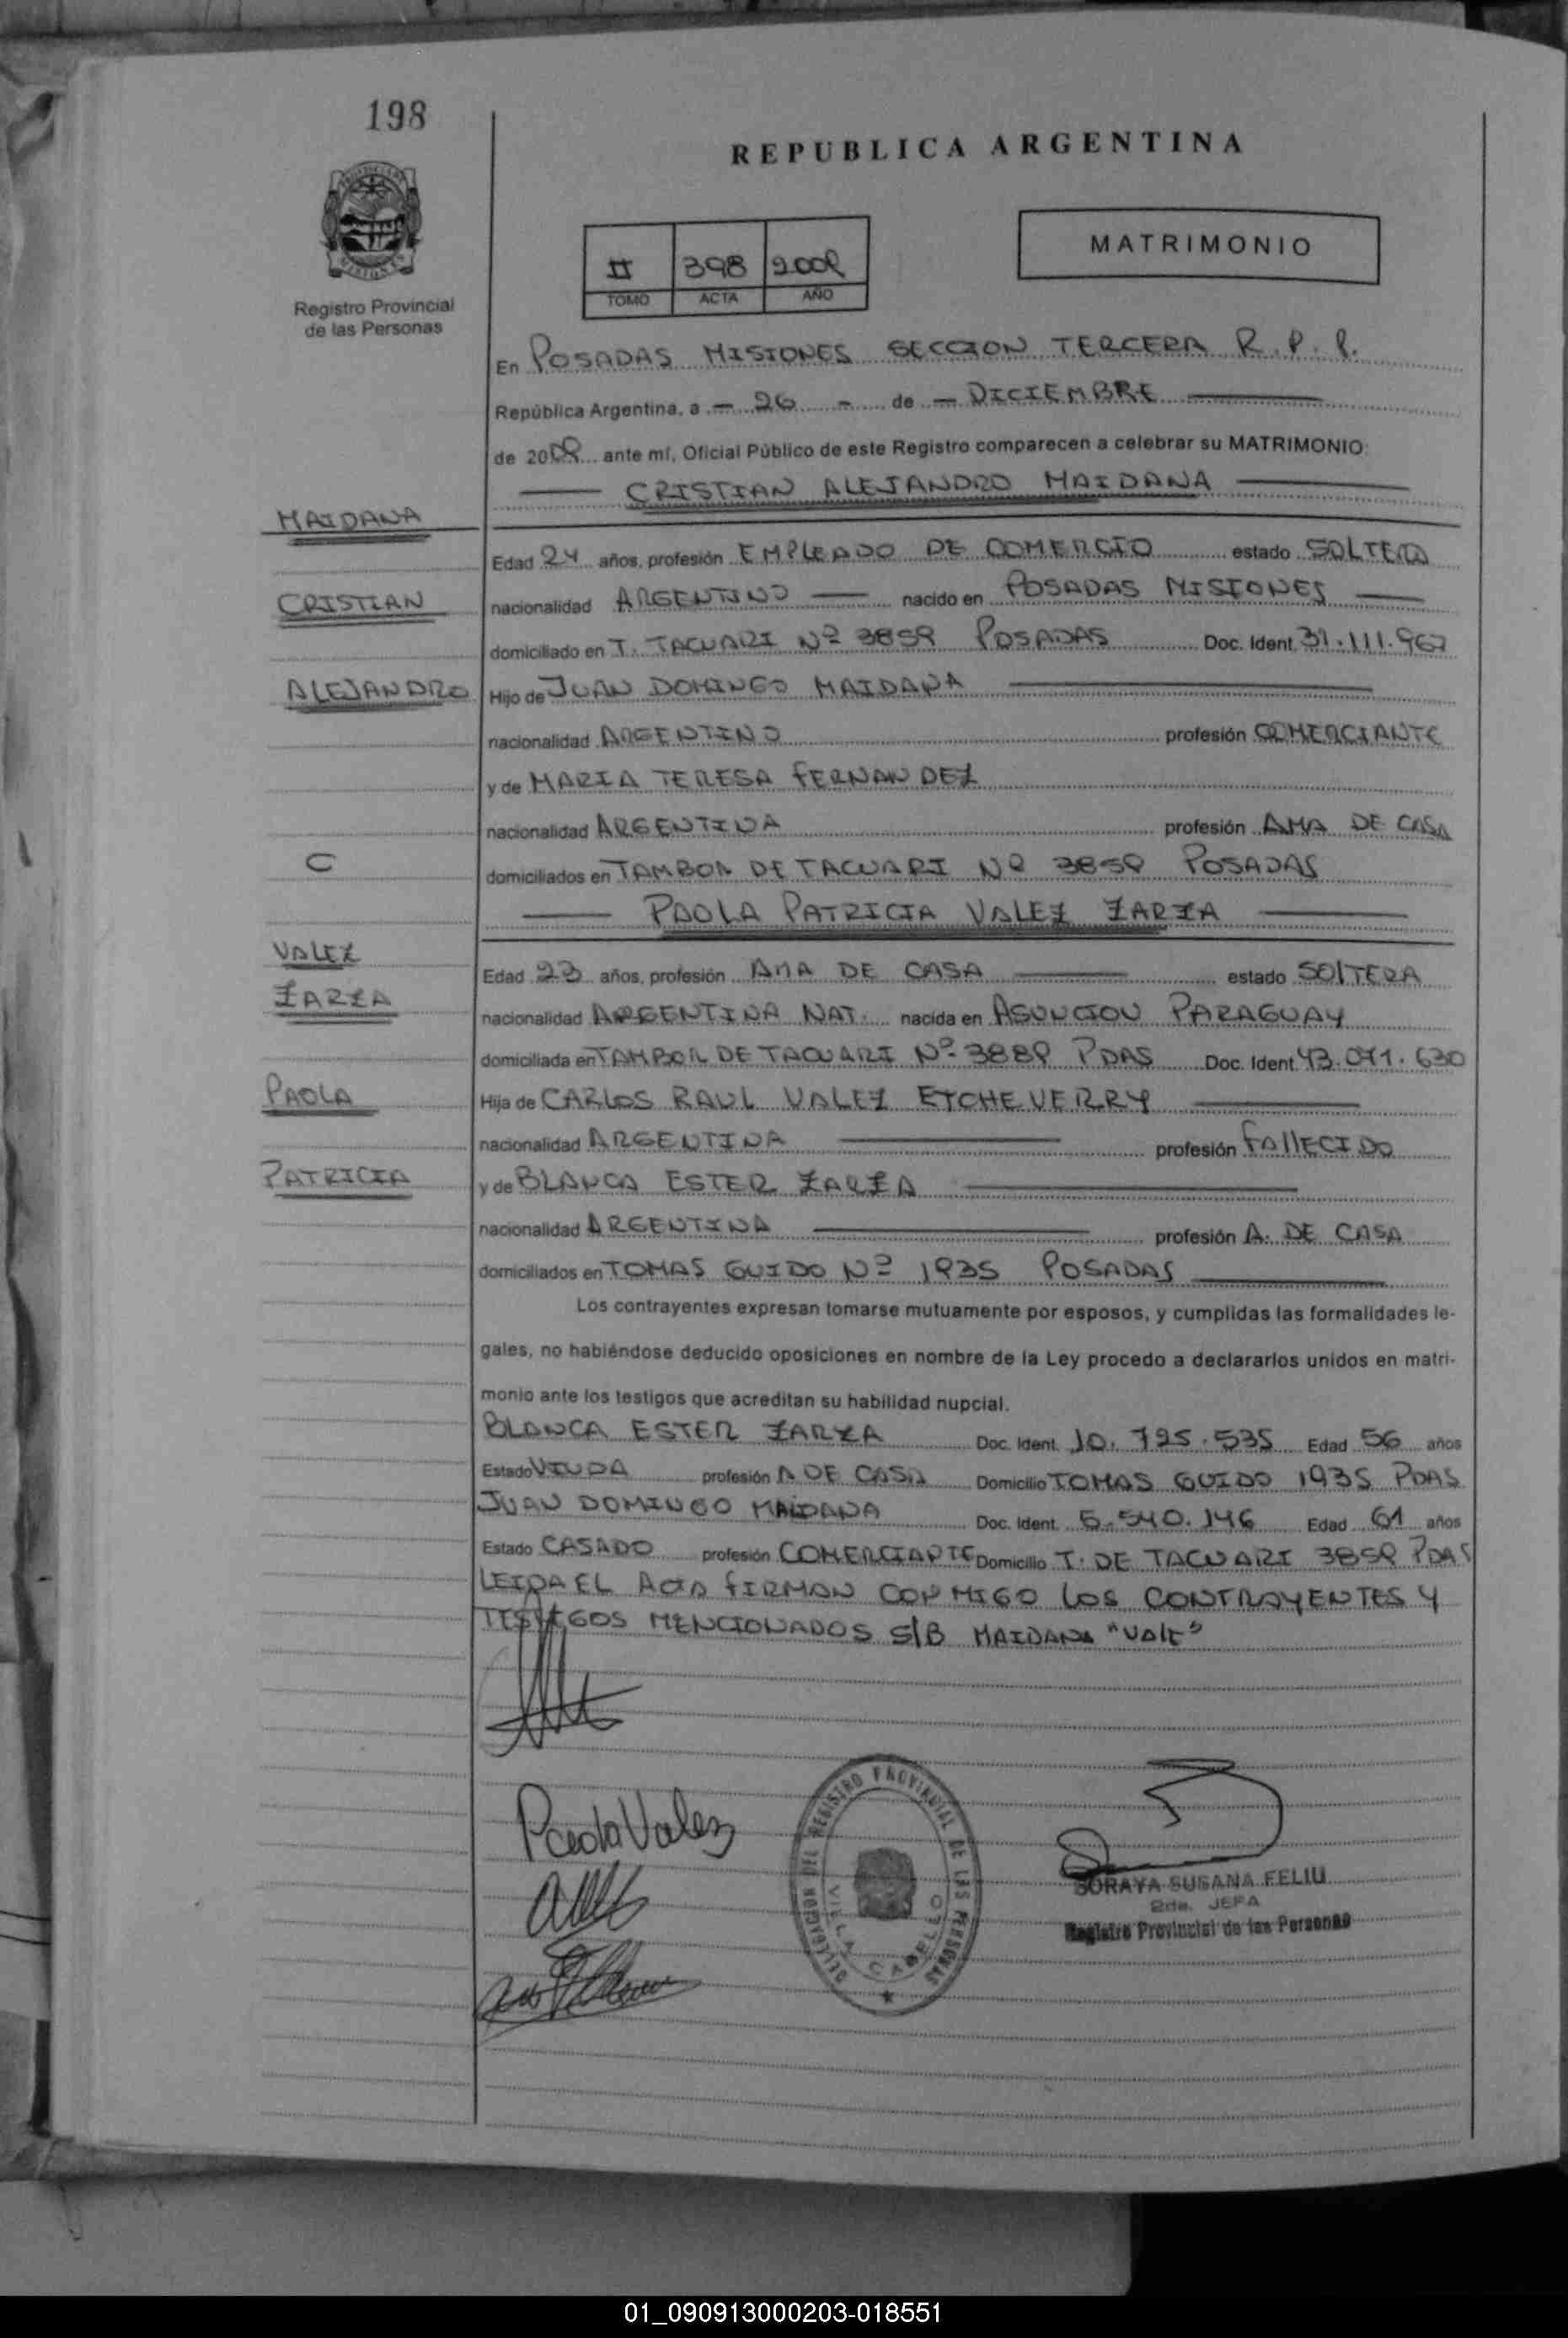 198
REPUBLICA ARGENTINA
MATRIMONIO
II 398 2008
TOMO ACTA AÑO
Registro Provincial
de las Personas
En POSADAS MISIONES SECCION TERCERA R.P.P.
República Argentina, a - 26 - de - DICIEMBRE
de 2008 ante mí, Oficial Público de este Registro comparecen a celebrar su MATRIMONIO:
CRISTIAN ALEJANDRO MAIDANA
MAIDANA
Edad 24 años, profesión EMPLEADO DE COMERCIO estado SOLTERO
CRISTIAN
nacionalidad ARGENTINO nacido en POSADAS MISIONES
domiciliado en T. TACUARI Nº 3859 POSADAS Doc. Ident. 31.111.967
ALEJANDRO
Hijo de JUAN DOMINGO MAIDANA
nacionalidad ARGENTINO profesión COMERCIANTE
y de MARIA TERESA FERNANDEZ
nacionalidad ARGENTINA profesión AMA DE CASA
C
domiciliados en TAMBOR DE TACUARI Nº 3859 POSADAS
PAOLA PATRICIA VALEZ ZARZA
VALEZ
Edad 23 años, profesión AMA DE CASA estado SOLTERA
ZARZA
nacionalidad ARGENTINA NAT. nacida en ASUNCION PARAGUAY
domiciliada en TAMBOR DE TACUARI Nº 3889 PDAS Doc. Ident. 43.071.630
PAOLA
Hija de CARLOS RAUL VALEZ ETCHEVERRY
nacionalidad ARGENTINA profesión FALLECIDO
PATRICIA
y de BLANCA ESTER ZARZA
nacionalidad ARGENTINA profesión A. DE CASA
domiciliados en TOMAS GUIDO Nº 1935 POSADAS
Los contrayentes expresan tomarse mutuamente por esposos, y cumplidas las formalidades le-
gales, no habiéndose deducido oposiciones en nombre de la Ley procedo a declararlos unidos en matri-
monio ante los testigos que acreditan su habilidad nupcial.
BLANCA ESTER ZARZA Doc. Ident. 10.725.535 Edad 56 años
Estado VIUDA profesión A DE CASA Domicilio TOMAS GUIDO 1935 PDAS
JUAN DOMINGO MAIDANA Doc. Ident. 5.540.146 Edad 61 años
Estado CASADO profesión COMERCIANTE Domicilio T. DE TACUARI 3859 PDAS
LEIDA EL ACTA FIRMAN CONMIGO LOS CONTRAYENTES Y
TESTIGOS MENCIONADOS S/B MAIDANA "VALE"
Paola Valez
DELEGACION DEL REGISTRO PROVINCIAL DE LAS PERSONAS
VILLA CABELLO
SORAYA SUSANA FELIU
2da. JEFA
Registro Provincial de las Personas
01_090913000203-018551